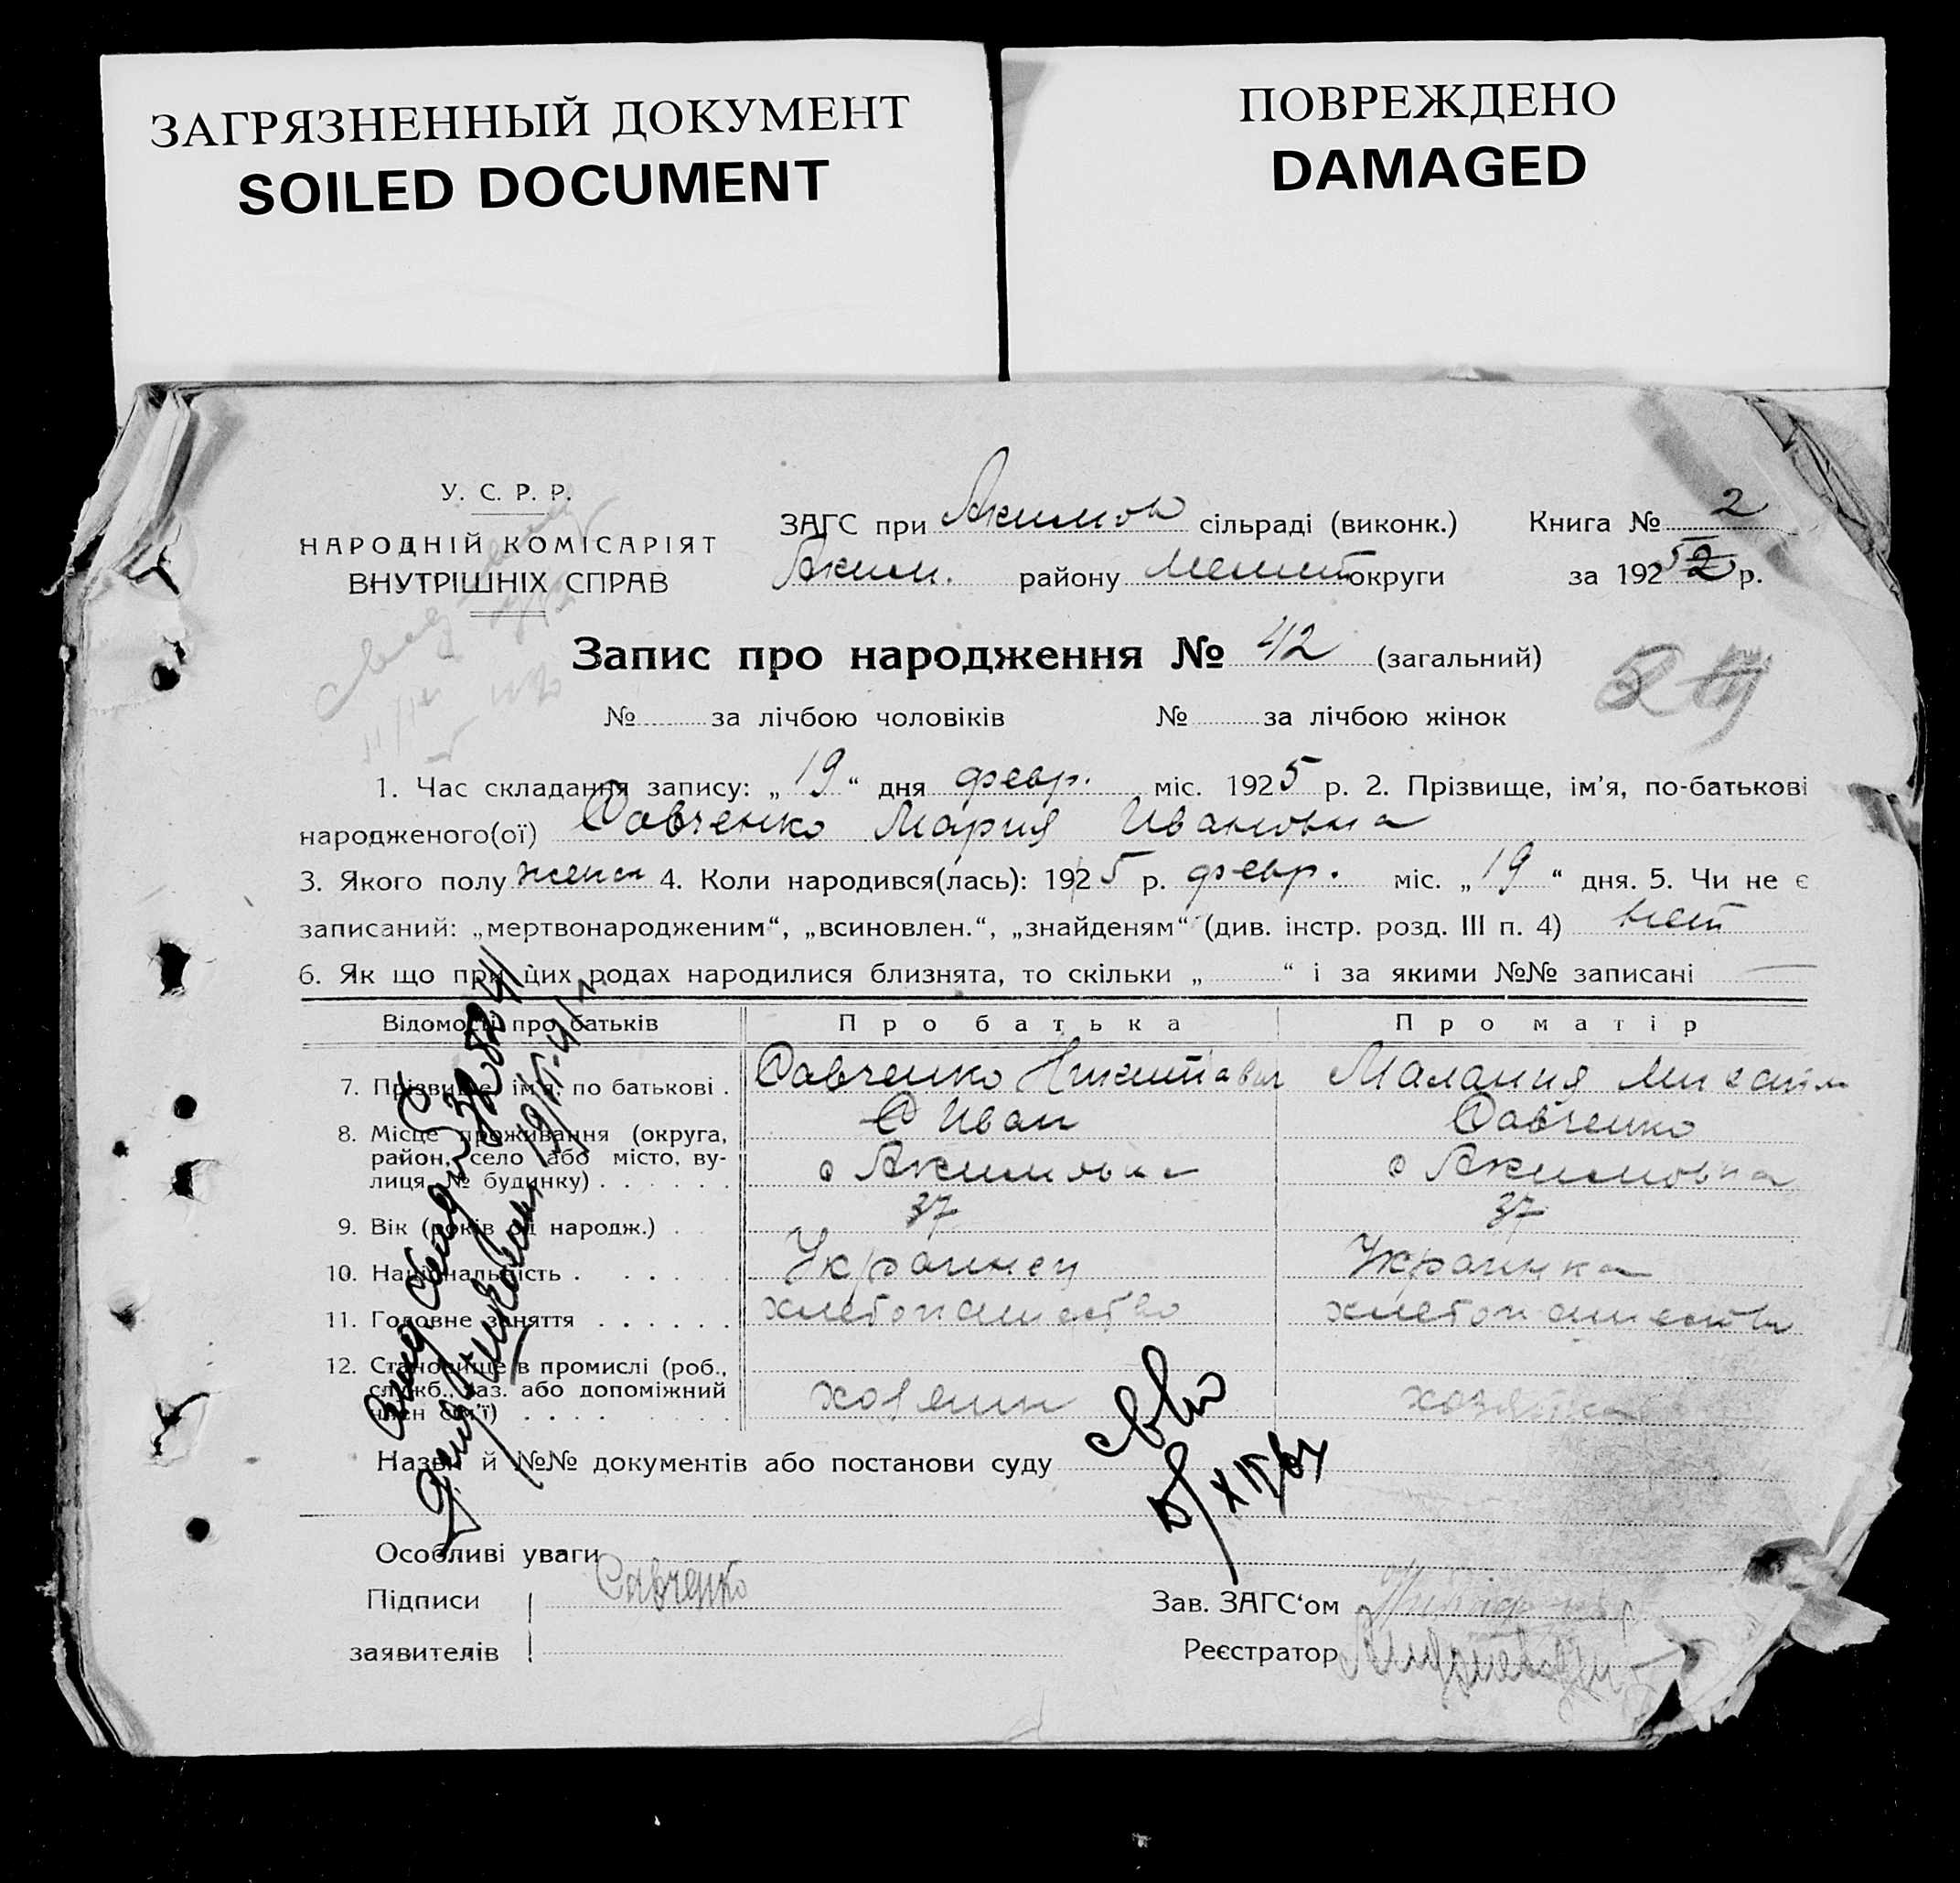 ЗАГРЯЗНЕННЫЙ ДОКУМЕНТ
SOILED DOCUMENT
ПОВРЕЖДЕНО
DAMAGED
У. С. Р. Р.
НАРОДНІЙ КОМІСАРІЯТ
ВНУТРІШНІХ СПРАВ
ЗАГС при Акимов сільраді (виконк.) Книга № 2
Аким. району Мелит округи за 192 5 р.
Запис про народження № 42 (загальний)
№ за лічбою чоловіків № за лічбою жінок
1. Час складання запису: „19“ дня февр. міс. 1925 р. 2. Прізвище, ім'я, по-батькові
народженого(ої) Савченко Мария Ивановна
3. Якого полу женск 4. Коли народився(лась): 1925 р. февр. міс. „19“ дня. 5. Чи не є
записаний: „мертвонародженим“, „всиновлен.“, „знайденям“ (див. інстр. розд. III п. 4) нет
6. Як що при цих родах народилися близнята, то скільки „ “ і за якими №№ записані —
Відомості про батьків Про батька Про матір
7. Прізвище, ім'я, по батькові . Савченко Никитавич Малания Михайл
Иван Савченко
8. Місце проживання (округа,
район, село або місто, ву-
лиця, № будинку) . . . . . . с Акимовка с Акимовка
9. Вік (років од народж.) . 37 37
10. Національність . . . . . Украинец Украинка
11. Головне заняття . . . . . . хлебопашество хлебопашество
12. Становище в промислі (роб.,
служб., хаз. або допоміжний
член сім'ї) . . . . . . хозяин хозяйка
Назви й №№ документів або постанови суду
Особливі уваги
Підписи Савченко
заявителів
Зав. ЗАГС‘ом
Реєстратор